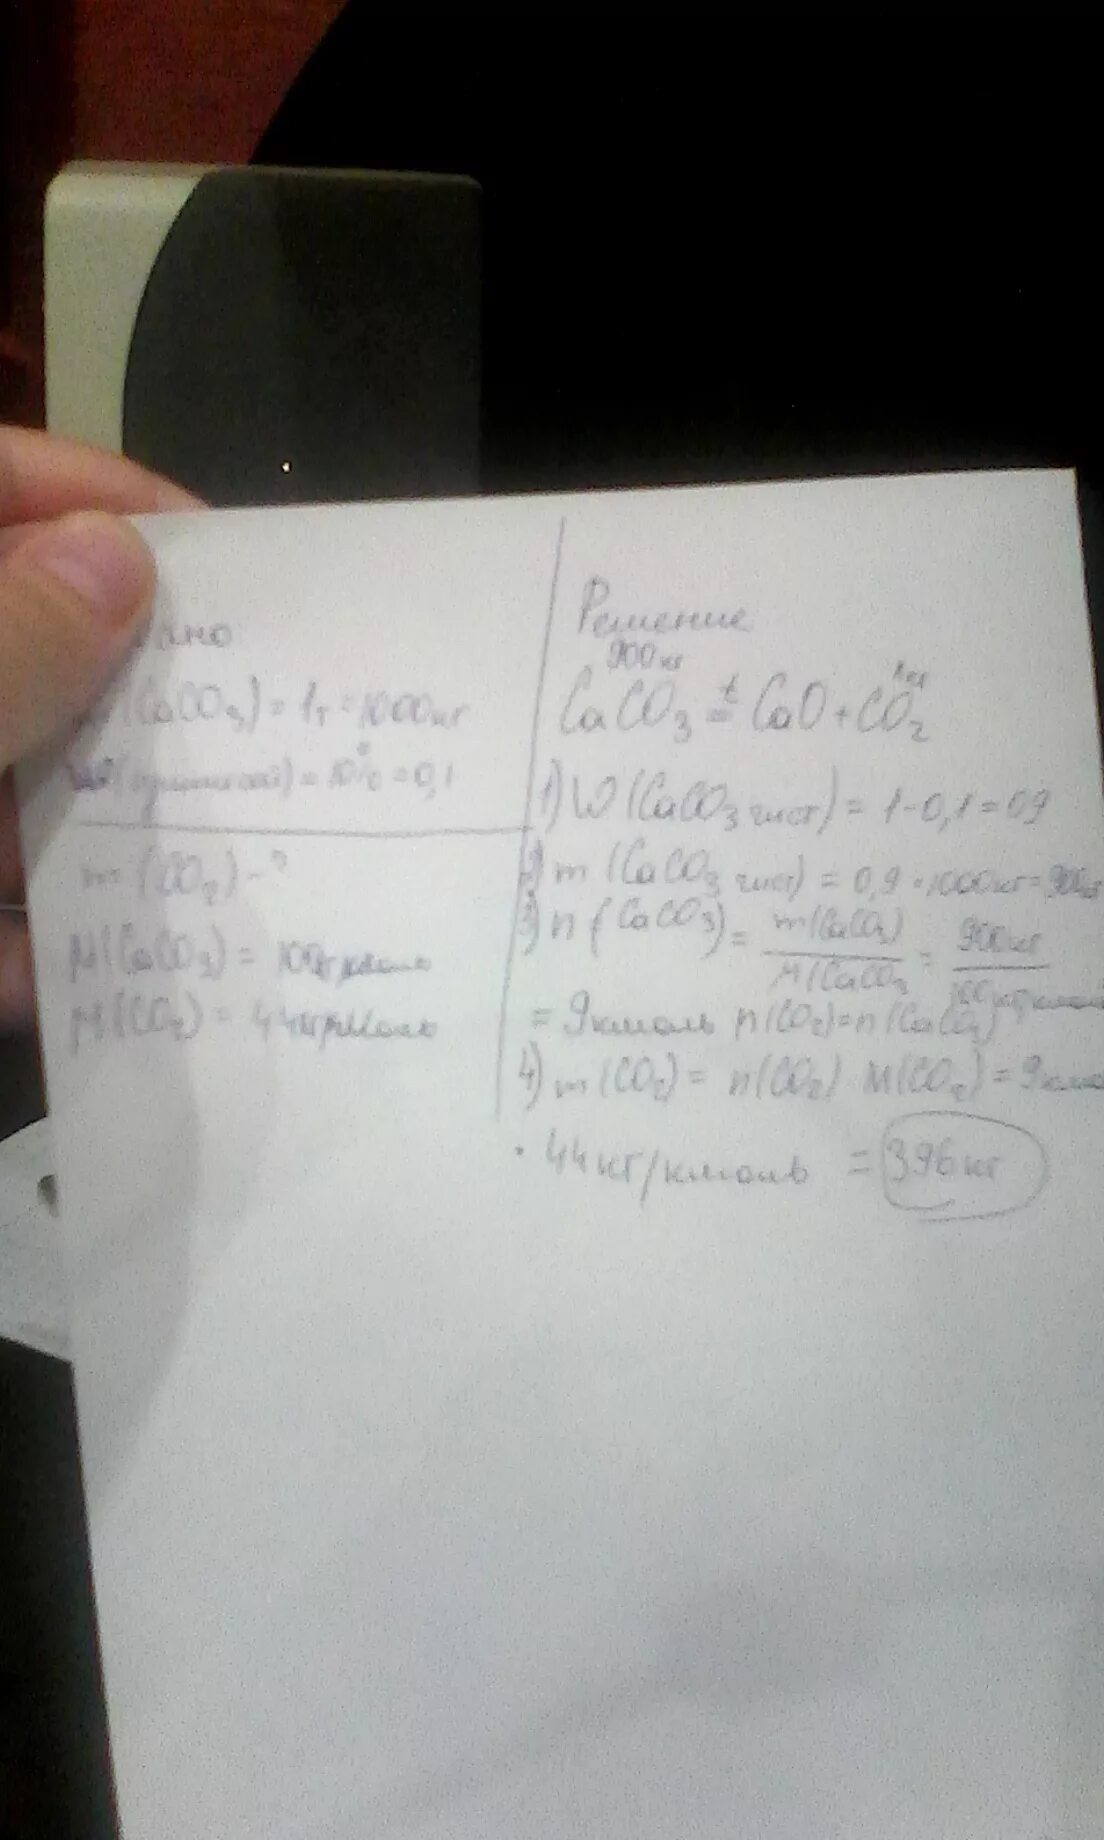 но
(CaCO₃) = 1т = 1000кг
= 10% = 0,1
m (CO₂) - ?
M(CaCO₃) =
M(CO₂) = 44кг/кмоль
Решение
900кг
CaCO₃ t= CaO + CO₂
1) W (CaCO₃ чист) = 1-0,1=0,9
2) m (CaCO₃ чист) = 0,9 · 1000кг = 900кг
3) n (CaCO₃) = m(CaCO₃) / M(CaCO₃ = 900кг / 100кг/кмоль
= 9кмоль n(CO₂)=n(CaCO₃)
4) m(CO₂) = n(CO₂) M(CO₂) = 9кмо
· 44кг/кмоль = 396кг